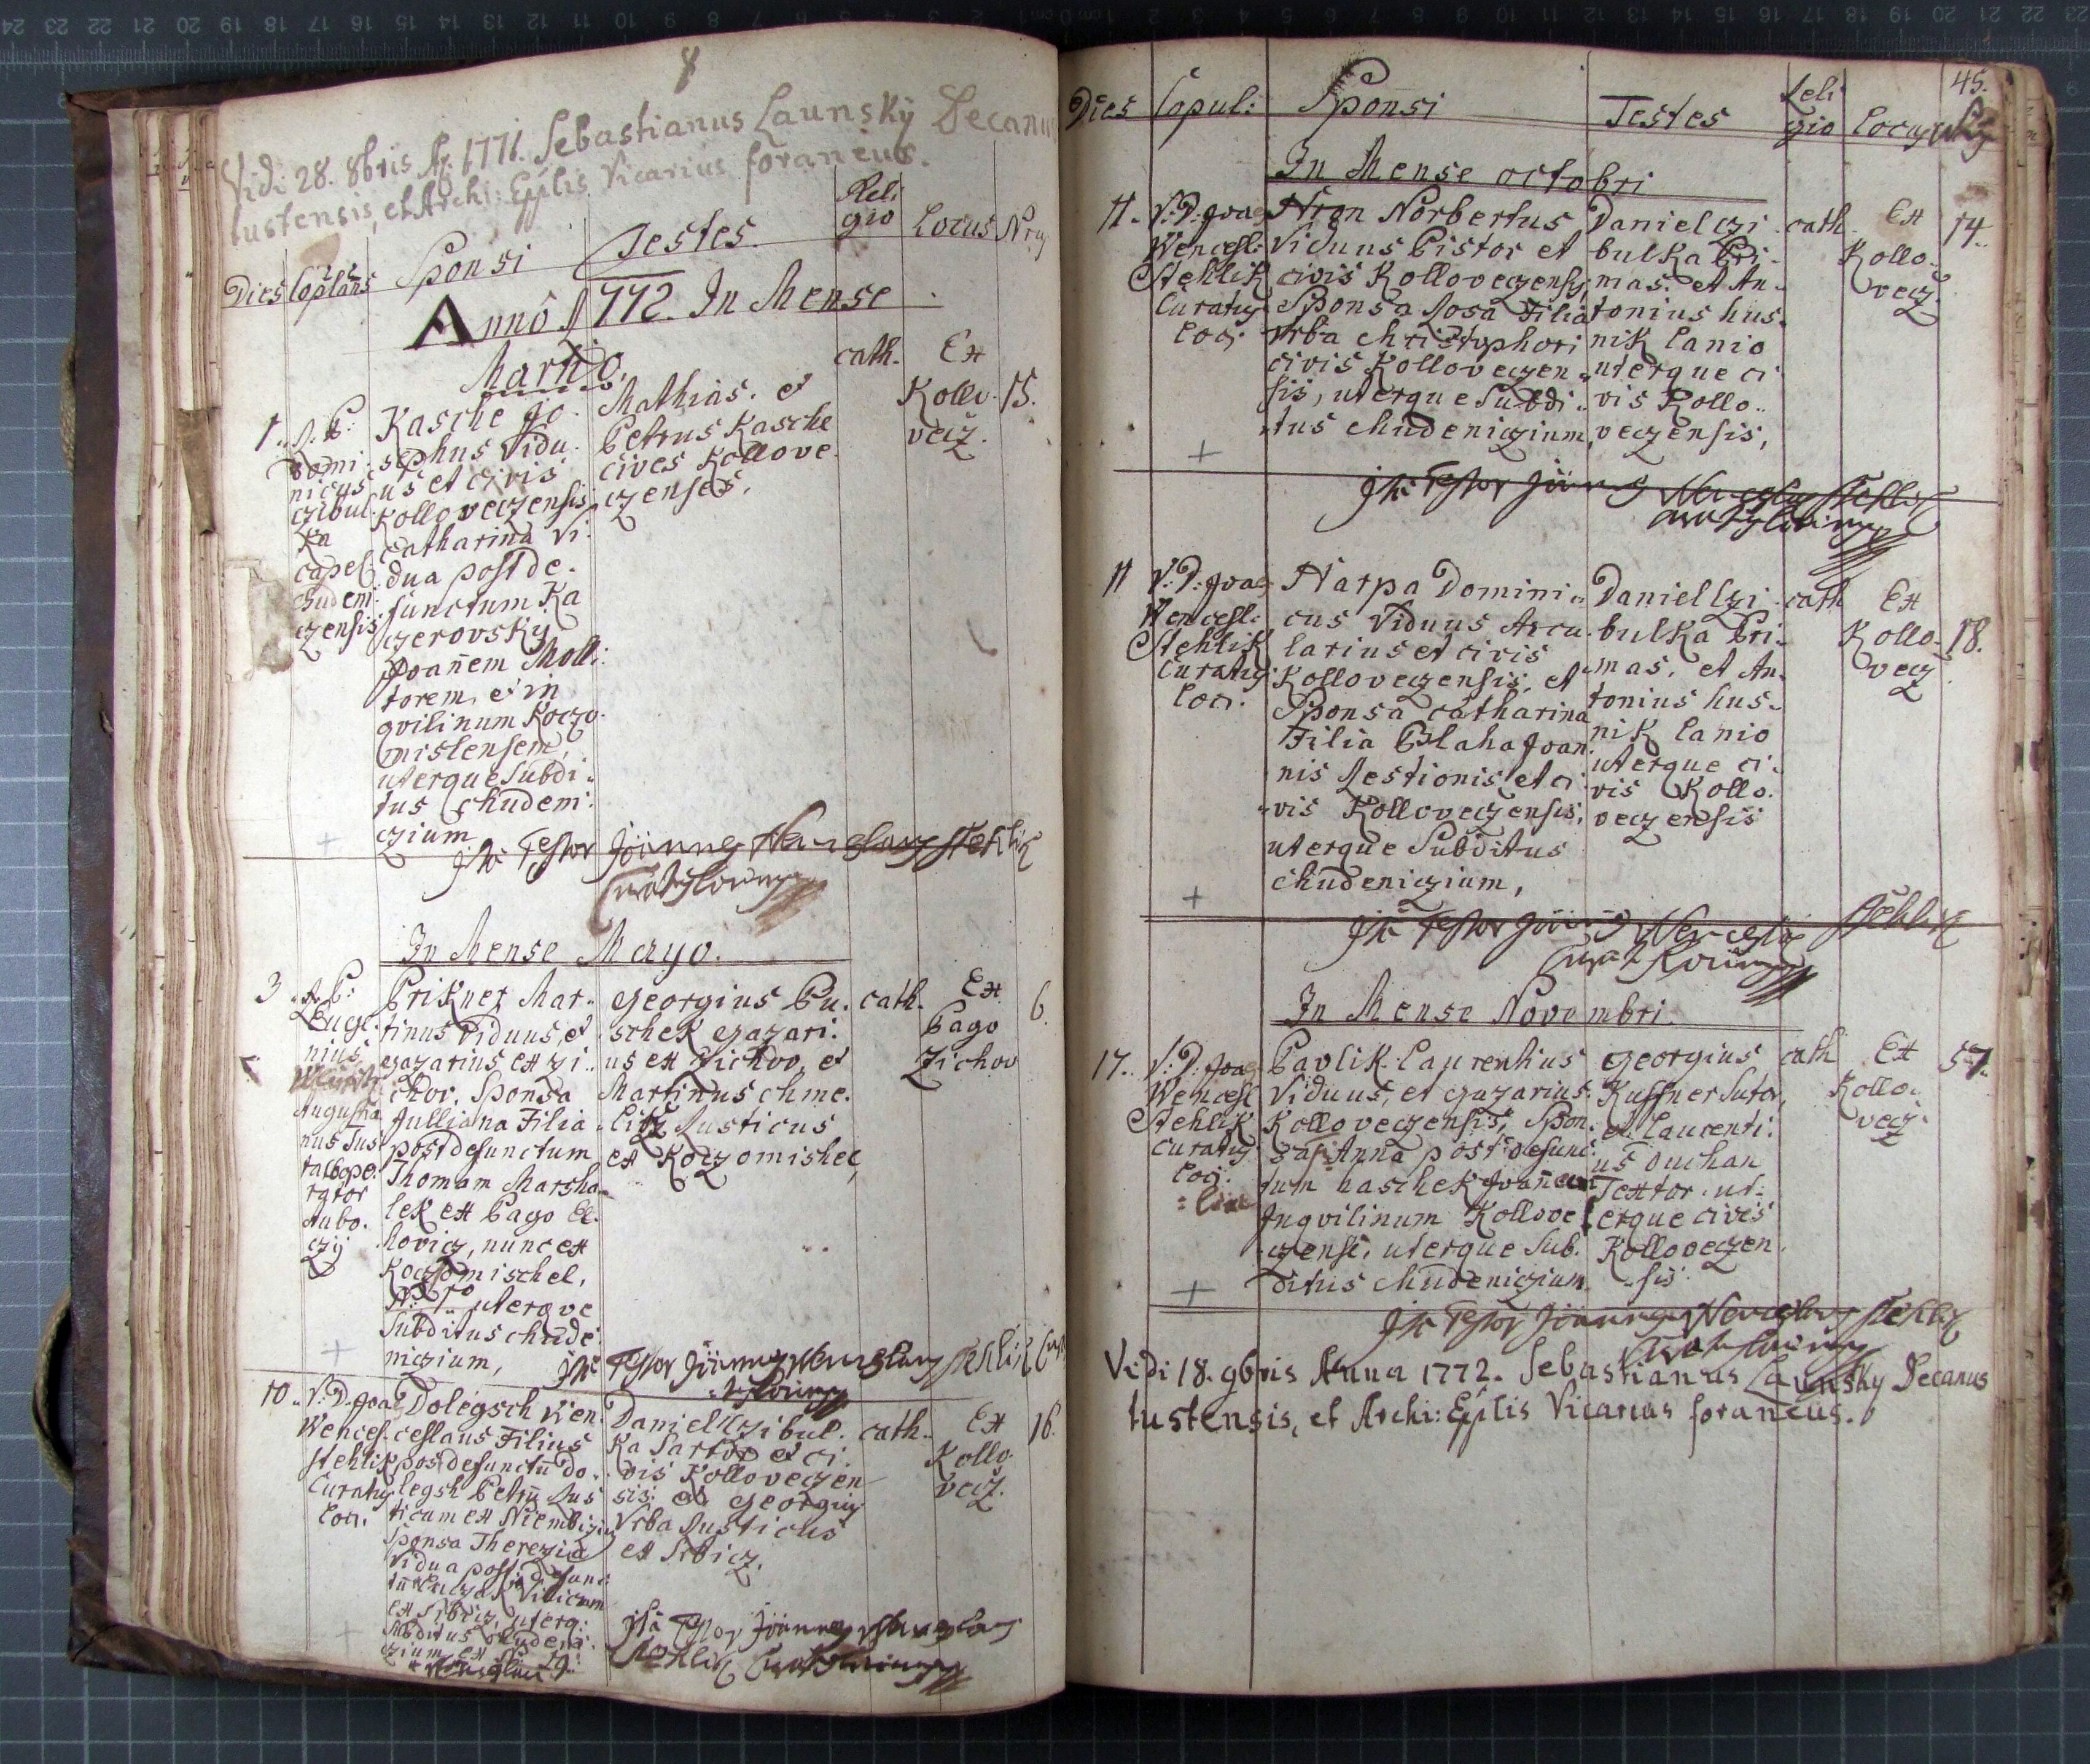 8
Vidi 28. 8bris Ao. 1771. Sebastianus Launskÿ Decanus
tustensis, et Archi: Eplis Vicarius foraneus.
Dies Coplans Sponsi Testes Reli
gio Locus Nrus
Anno 1772. In Mense
Martio.
1. A. P.
Domi
nicus
czibul
ka
capel.
chudem.
czensis
Kasche Jo.
sephus Vidu.
us et civis
Kolloveczensis
Catharina Vi.
dua post de.
functum Ka
czerovsky
Joañem Moli.
torem, et in
qvilinum Koczo.
mislensem,
uterque Subdi.
tus chudeni.
czium
Mathias. et
Petrus Kasche
cives Kollove.
czenses.
cath.
Ex
Kollo.
vecz.
15.
Ita Testor Joannes Wenceslaus Stehlik
In Mense Mayo.
3
P:
Euge.
nius
Augusta
nus Tus
Prikner Mar.
tinus Viduus, et
gazarius ex Zi.
chov. Sponsa
Julliana Filia
post defunctum
Thomam Marsha.
lek ex Pago
hovicz, nunc ex
Koczomischel,
uterqve
Subditus chude
niczium,
Georgius Pu.
schek gazari.
us ex Zichov, et
Martinus chme.
Rusticus
ex Koczomishel,
cath.
Ex
Pago
Zichov
6.
Ita Testor Joannes Wenceslaus Stehlik
10. V: D. Joae
Wencesl.
Stehlik
Curatus
Loci.
Dolegsch Wen.
ceslaus Filius
post defunctu Do.
legsh Petru Rus
ticum ex Niembiczin
Sponsa Therezia
Vidua post defunc
ex Srbicz, uterq:
Subditus chudeni.
czium
Daniel Czibul.
ka Sartor et ci.
vis Kolloveczen
sis. et Georgius
Vrba Rusticus
ex Srbicz.
cath.
Ex
Kollo.
vecz.
16.
Ita Testor Joannes Wenceslaus
Stehlik
45.
Dies Copul: Sponsi Testes Reli
gio Locus
In Mense octobri
11. V: D: Joae
Wencesl:
Stehlik
Curatus
Loci.
Norbertus
Viduus Pistor et
civis Kolloveczensis,
Sponsa Rosa Filia
Vrba Christophori
civis Kolloveczen
sis, uterque Subdi.
tus chudeniczium,
Daniel Czi
bulka Pri.
mas. et An.
tonius hus.
nik Lanio
uterque ci
vis Kollo.
veczensis,
cath.
Ex
Kollo.
vecz.
14.
Ita Testor Joannes Wenceslaus Stehlik
11 V: D: Joae
Wencesl:
Stehlik
Curatus
Loci.
Harpa Domini
cus Viduus Arcu.
larius et civis
Kolloveczensis, et
Sponsa Catharina
Filia Blaha Joan.
nis Restionis et ci
vis Kolloveczensis,
uterque Subditus
chudeniczium,
Daniel Czi.
bulka Pri.
mas, et An.
tonius hus.
nik Lanio
uterque ci.
vis Kollo.
veczensis
cath
Ex
Kollo.
vecz
18.
Ita Testor Joannes Wenceslaus Stehlik
In Mense Novembri.
17. V: D. Joae
Wencesl
Stehlik
curatus
Loci.
Pavlik Laurentius
Viduus, et gazarius
Kolloveczensis, Spon.
sa Anna post defunc.
tum haschek Joañem
Inqvilinum Kollove
czensi, uterque Sub.
ditus chudeniczium
Georgius
Kussner Sutor,
et Laurenti.
us Duchan
Textor. ut.
erque civis
Kolloveczen
sis.
cath
Ex
Kollo.
vecz.
57.
Ita Testor Joannes Wenceslaus Stehlik
Vidi 18. 9bris Anna 1772. Sebastianus Launskÿ Decanus
tustensis, et Archi: Eplis Vicarius foraneus.